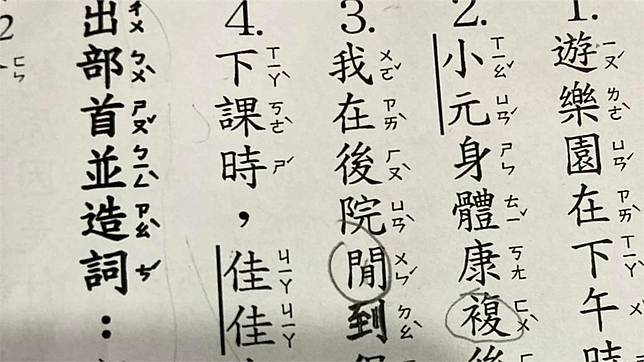 1.遊樂園在下午時
2.小元身體康複後
3.我在後院聞到
4.下課時，佳佳
出部首並造詞：
2